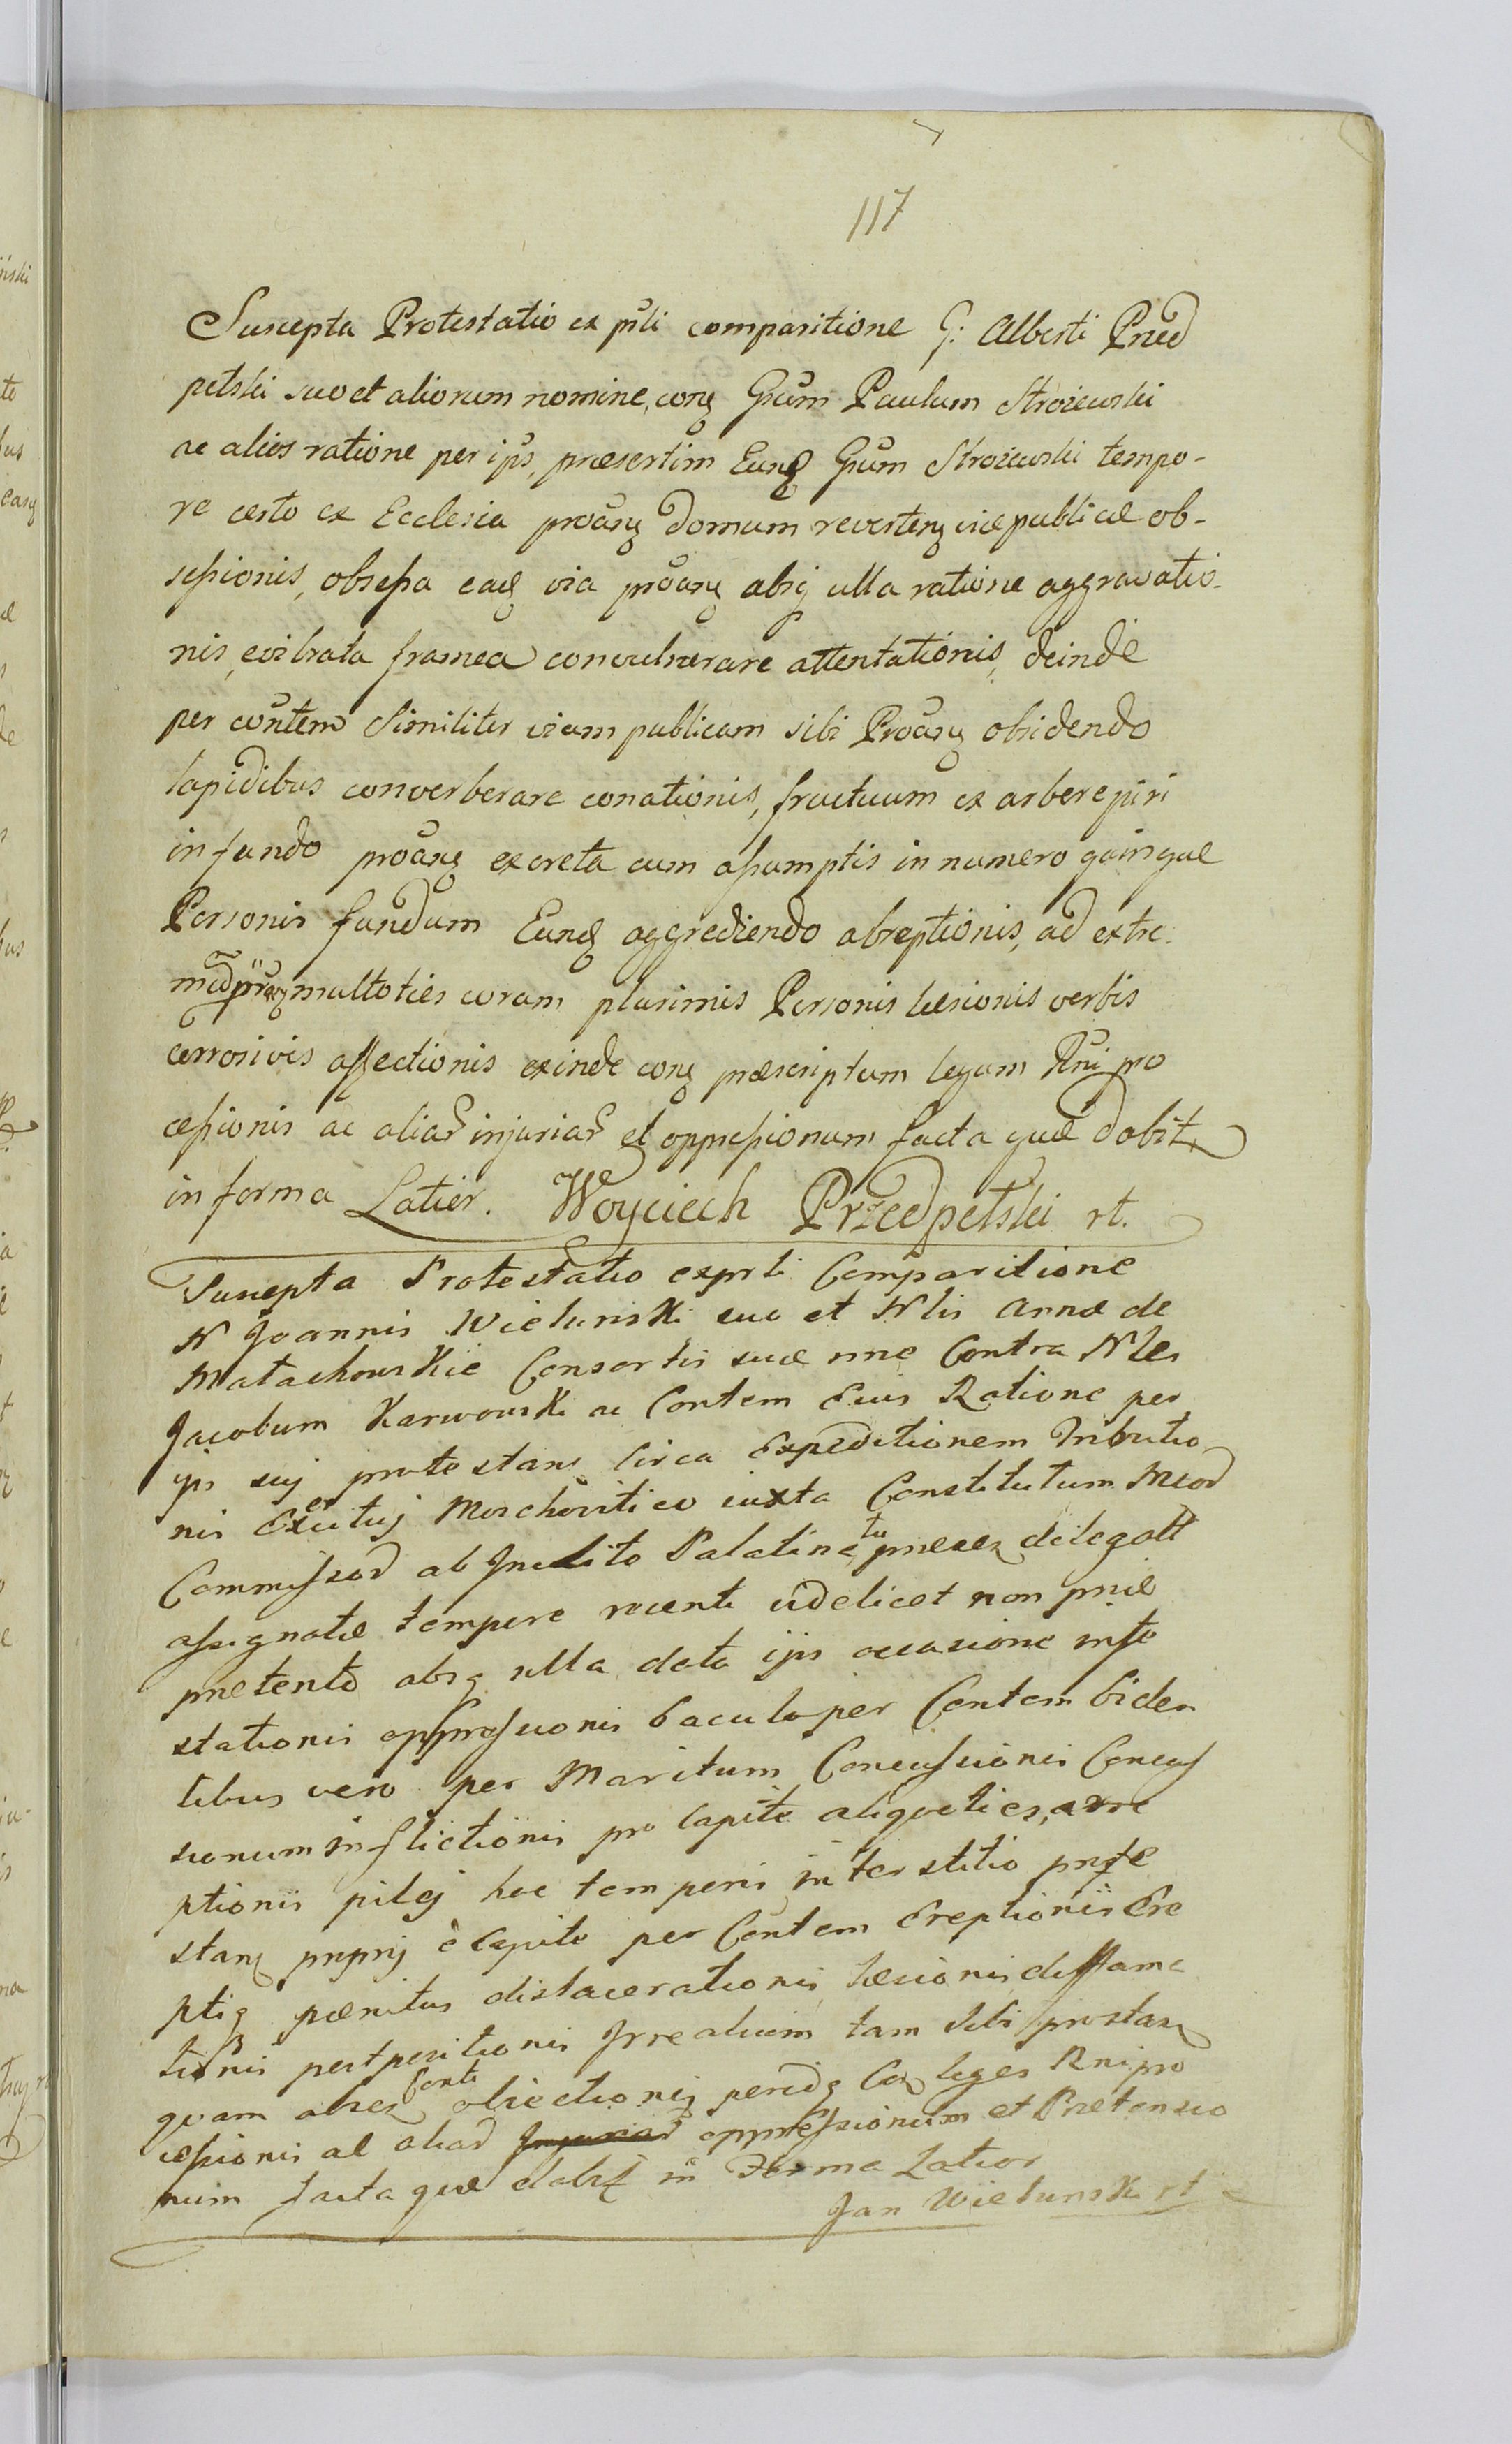 117
Suscepta Protestatio ex psli comparitione G: Alberti Przed
petski suo et aliorum nomine, cong Gsum Paulum Strożewski
ac alios ratione per ips, præsertim Eund Gsum Strożewski tempo-
re certo ex Ecclesia proang domum reverteng viæ publicæ ob-
sessionis, obsessa eaq via proang absq ulla ratione aggravatio-
nis, evibrata framea convulnerare attentationis, deinde
per contem Similiter viam publicam sibi Proang obsidendo
lapidibus converberare conationis, fructuum ex arbere piri
in fundo proang excreta cum assumptis in numero quinque
Personis fundum Eund aggrediendo abreptionis, ad extre-
multoties coram plurimis Personis læsionis verbis
corrosivis affectionis exinde cong præscriptum legum Rni pro
cessionis ac aliar injuriar et oppressionum facta quæ dabit
in forma Latier. Woyciech Przedpetski rt.
Suscepta Protestatio ex prli Comparitione
N Joannis Wielunski suo et Nlis Annæ de
Matachowskie Consortis suæ nne Contra Nles
Jacobum Karwowski ac Contem Eius Ratione per
ips suj protestans circa Expeditionem Tributio
nis Exercitus Moschovitico iuxta Constitutum Meod
Commissod ab Inclito Palatinatu præsez delegatt
assignatæ tempore recenti videlicet non pridie
prætento absq ulla data ijs occasione infe
stationis oppressionis baculo per Contem biden
tibus vero per Maritum Concussionis Concus
sionum inflictionis pro capite aliquoties, arre
ptionis pilej hoc temporis interstitio prote
stanq proprij è capite per Contem Ereptionis Ere
ptiq pænitus dislacerationis læsionis diffama
tionis postpositionis Irrealium tam sibi prostanq
quam abrez Conti obiectionis perindq Conq leges Rni pro
cessionis ac aliad Injuriad oppressionum et Prætensio
num facta quæ dabit in Forma Latior
Jan Wielunski rt